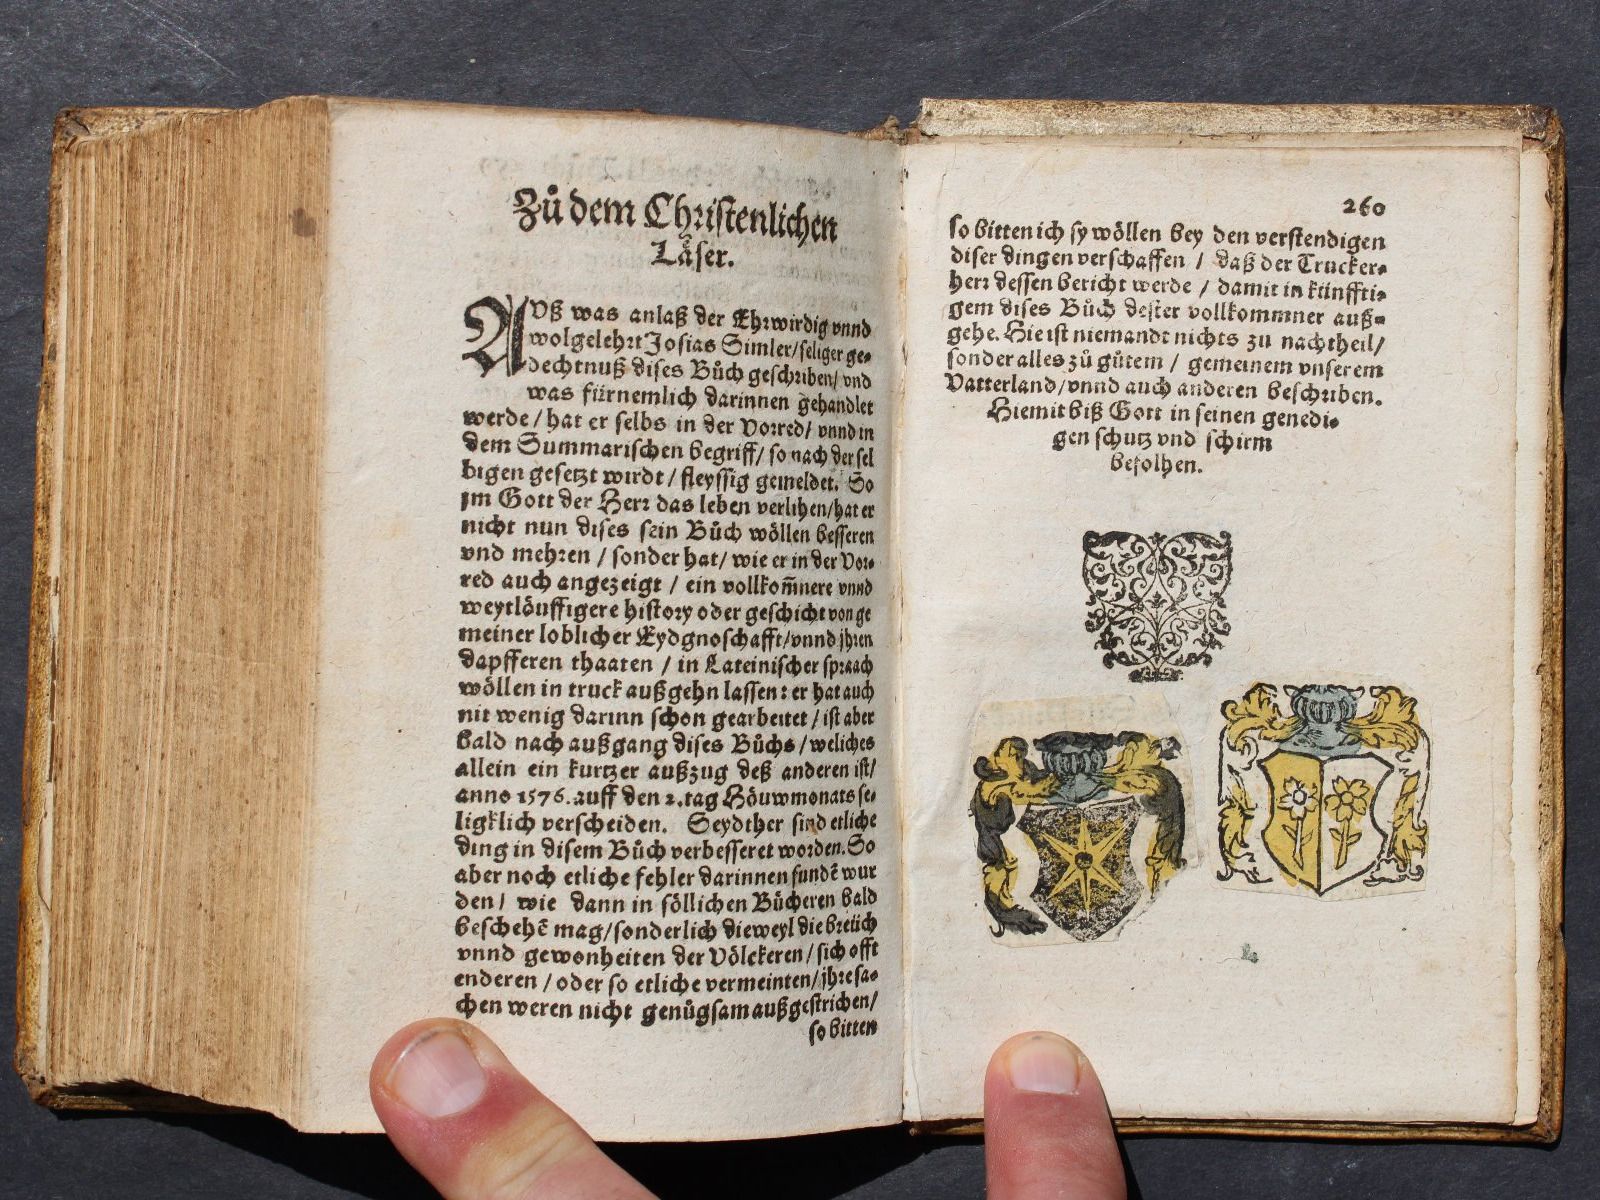 Zů dem Christenlichen
Läser.
AVß was anlaß der Ehrwirdig vnnd
wolgelehrt Josias Simler/seliger ge-
dechtnuß dises Bůch geschriben/vnd
was fürnemlich darinnen gehandlet
werde/hat er selbs in der Vorred/vnnd in
dem Summarischen begriff/so nach der sel
bigen gesetzt wirdt/fleyssig gemeldet. So
jm Gott der Herr das leben verlihen/hat er
nicht nun dises sein Bůch wöllen besseren
vnd mehren/sonder hat/wie er in der Vor-
red auch angezeigt/ein vollkom̃nere vnnd
weytlöuffigere history oder geschicht von ge
meiner loblicher Eydgnoschafft/vnnd jhren
dapfferen thaaten/in Lateinischer spraach
wöllen in truck außgehn lassen: er hat auch
nit wenig darinn schon gearbeitet/ist aber
bald nach außgang dises Bůchs/weliches
allein ein kurtzer außzug deß anderen ist/
anno 1576. auff den 2. tag Höuwmonats se-
ligklich verscheiden. Seydther sind etliche
ding in disem Bůch verbesseret worden. So
aber noch etliche fehler darinnen fundẽ wur
den/wie dann in söllichen Bücheren bald
beschehẽ mag/sonderlich dieweyl die breüch
vnnd gewonheiten der Völckeren/sich offt
enderen/oder so etliche vermeinten/jhre sa-
chen weren nicht genůgsam außgestrichen/
so bitten
260
so bitten ich sy wöllen bey den verstendigen
diser dingen verschaffen/daß der Trucker-
herr dessen bericht werde/damit in künffti-
gem dises Bůch dester vollkommner auß-
gehe. Hie ist niemandt nichts zu nachtheil/
sonder alles zů gůtem/gemeinem vnserem
Vatterland/vnnd auch anderen beschriben.
Hiemit biß Gott in seinen genedi-
gen schutz vnd schirm
befolhen.